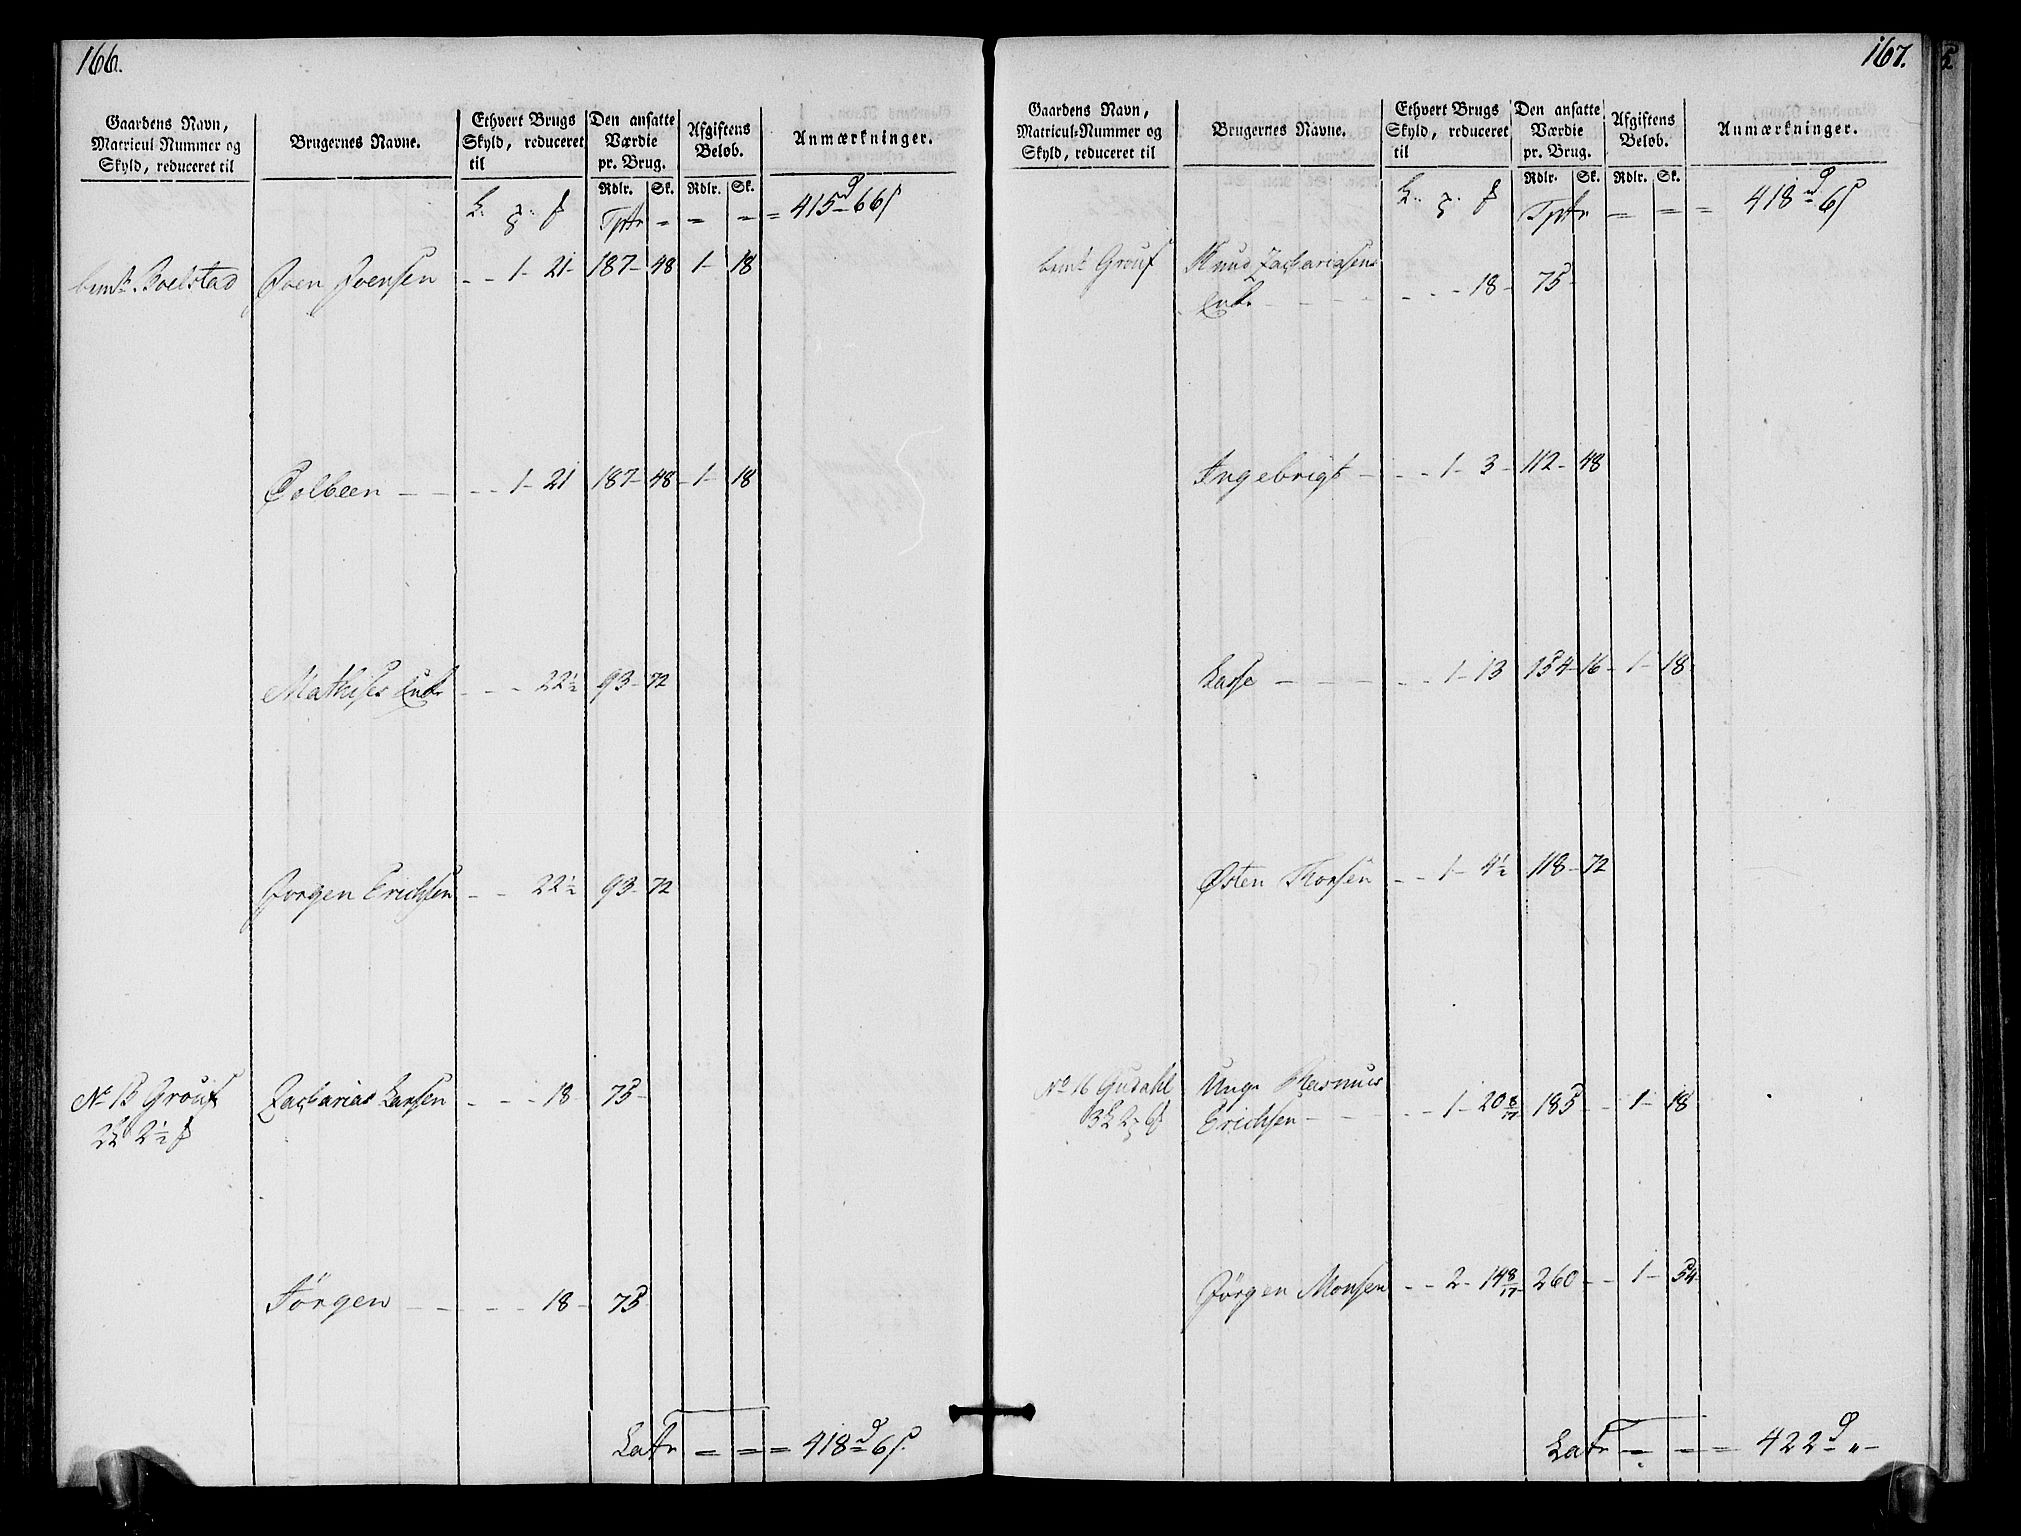 166.
Gaardens Navn,
Matricul-Nummer og
Skyld, reduceret til
Brugernes Navne.
Ethvert Brugs
Skyld, reduceret
til
Den ansatte
Værdie
pr. Brug.
Afgiftens
Beløb.
Anmærkninger.
Rdlr. Sk. Rdlr. Sk.
Tptr = = = = 415 d 66 s
bemt. Boelstad Joen Joensen - - 1 - 21 - 187 - 48 1 - 18
Colbeen - - - - 1 - 21 187 - 48 - 1 - 18
Mathises Enke - - - 22½ 93 - 72
Jørgen Erichsen - - 22½ 93 - 72
No 15 Grouf Zacharias Larsen - - - 18 - 75 -
Jørgen - - - - - 18 - 75
Latr = = = 418 d 6 s.
167.
Gaardens Navn,
Matricul-Nummer og
Skyld, reduceret til
Brugernes Navne.
Ethvert Brugs
Skyld, reduceret
til
Den ansatte
Værdie
pr. Brug.
Afgiftens
Beløb.
Anmærkninger.
Rdlr. Sk. Rdlr. Sk.
Tptr = = = = 418 d 6 s
bemt Grouf Knud Zachariasens
Enke - - - - - - - 18 - 75 -
Ingebrigt - - - 1 - 3 - 112 - 48
Lasse - - - - - 1 - 13 154 - 16 - 1 - 18
Østen Thorsen - - 1 - 4½ 118 - 72
No 16 Gudahl Unge Rasmus
Erichsen - - - - - 1 - 20 8/17 185 - - 1 - 18
Jørgen Monsen - - 2 - 14 8/17 260 - - 1 - 54
Latr = = = 422 d " -